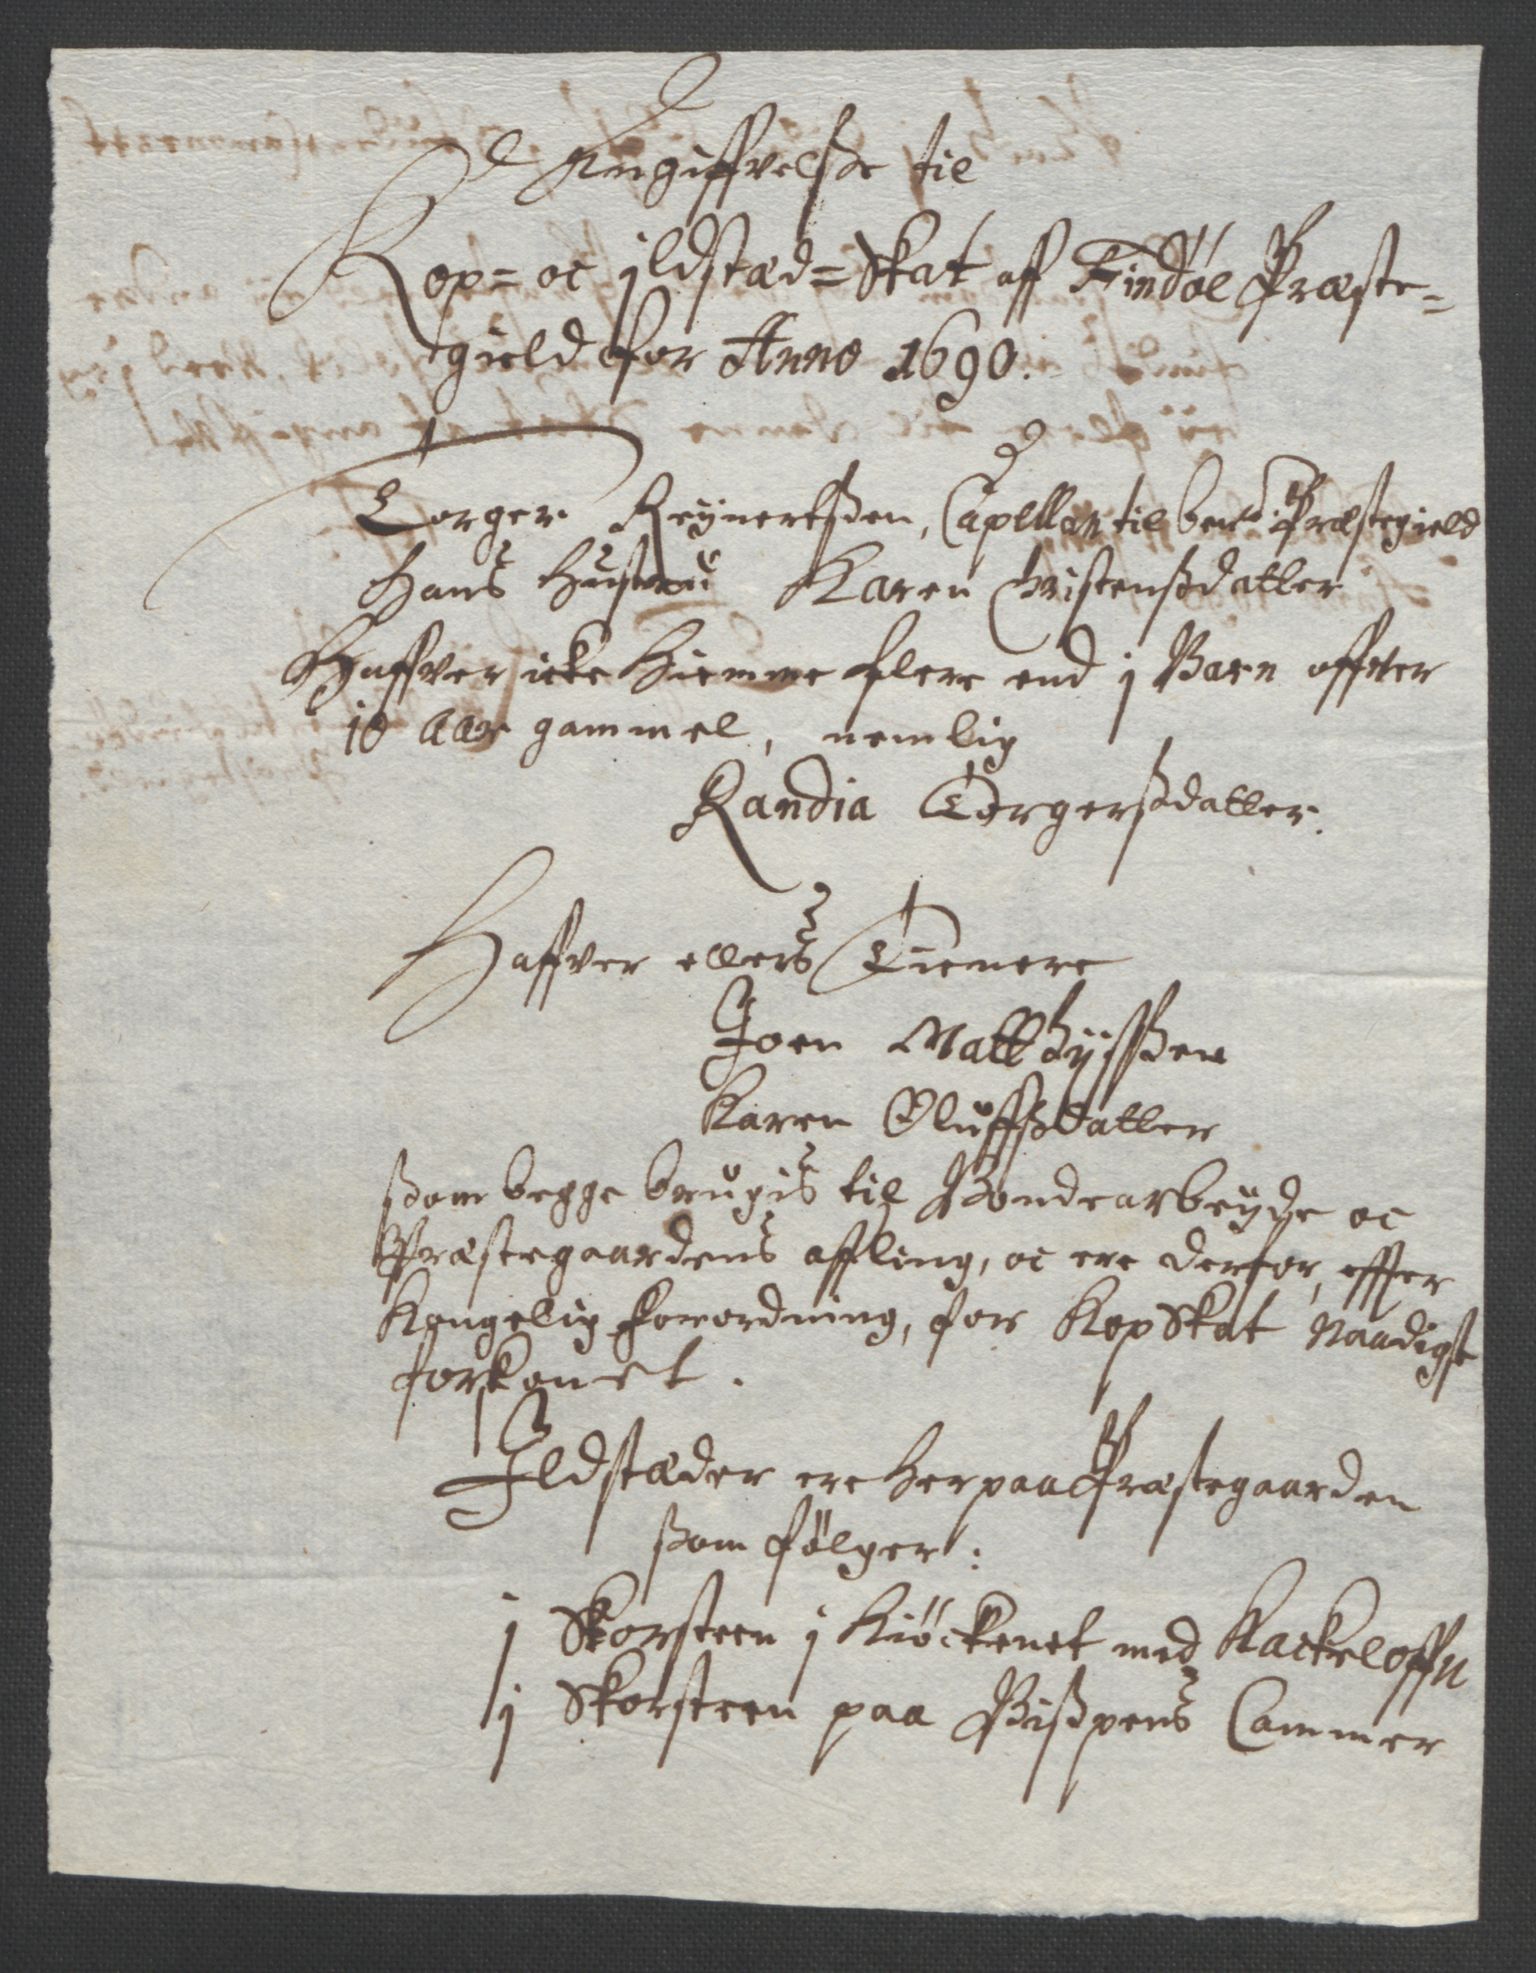 Angiffvelsse til
Kop= oc jldstæd=Skat aff Findøe Præste=
gield for Anno 1690.
Torger Reÿnertssen, Capellan til bemte Præstegield
Hans Hustru Karen Christenssdatter
Haffver icke Hiemme flere end j Barn offver
10 aar gammel, nemlig
Randia Torgerssdatter.
Haffver ellers Tienere
Joen Matthÿssen
Karen Oluffssdatter
ssom begge brugis til Bondearbeÿde oc
Præstegaardens affling, oc ere derfor, effter
Kongelig Forordning, for KopSkat Naadigst
forskonet.
Jldstæder ere Her paa Præstegaarden
ssom følger:
j Skorsteen j Kiöckenet med Kackeloffn
j Skorsteen paa Bisspens Cammer